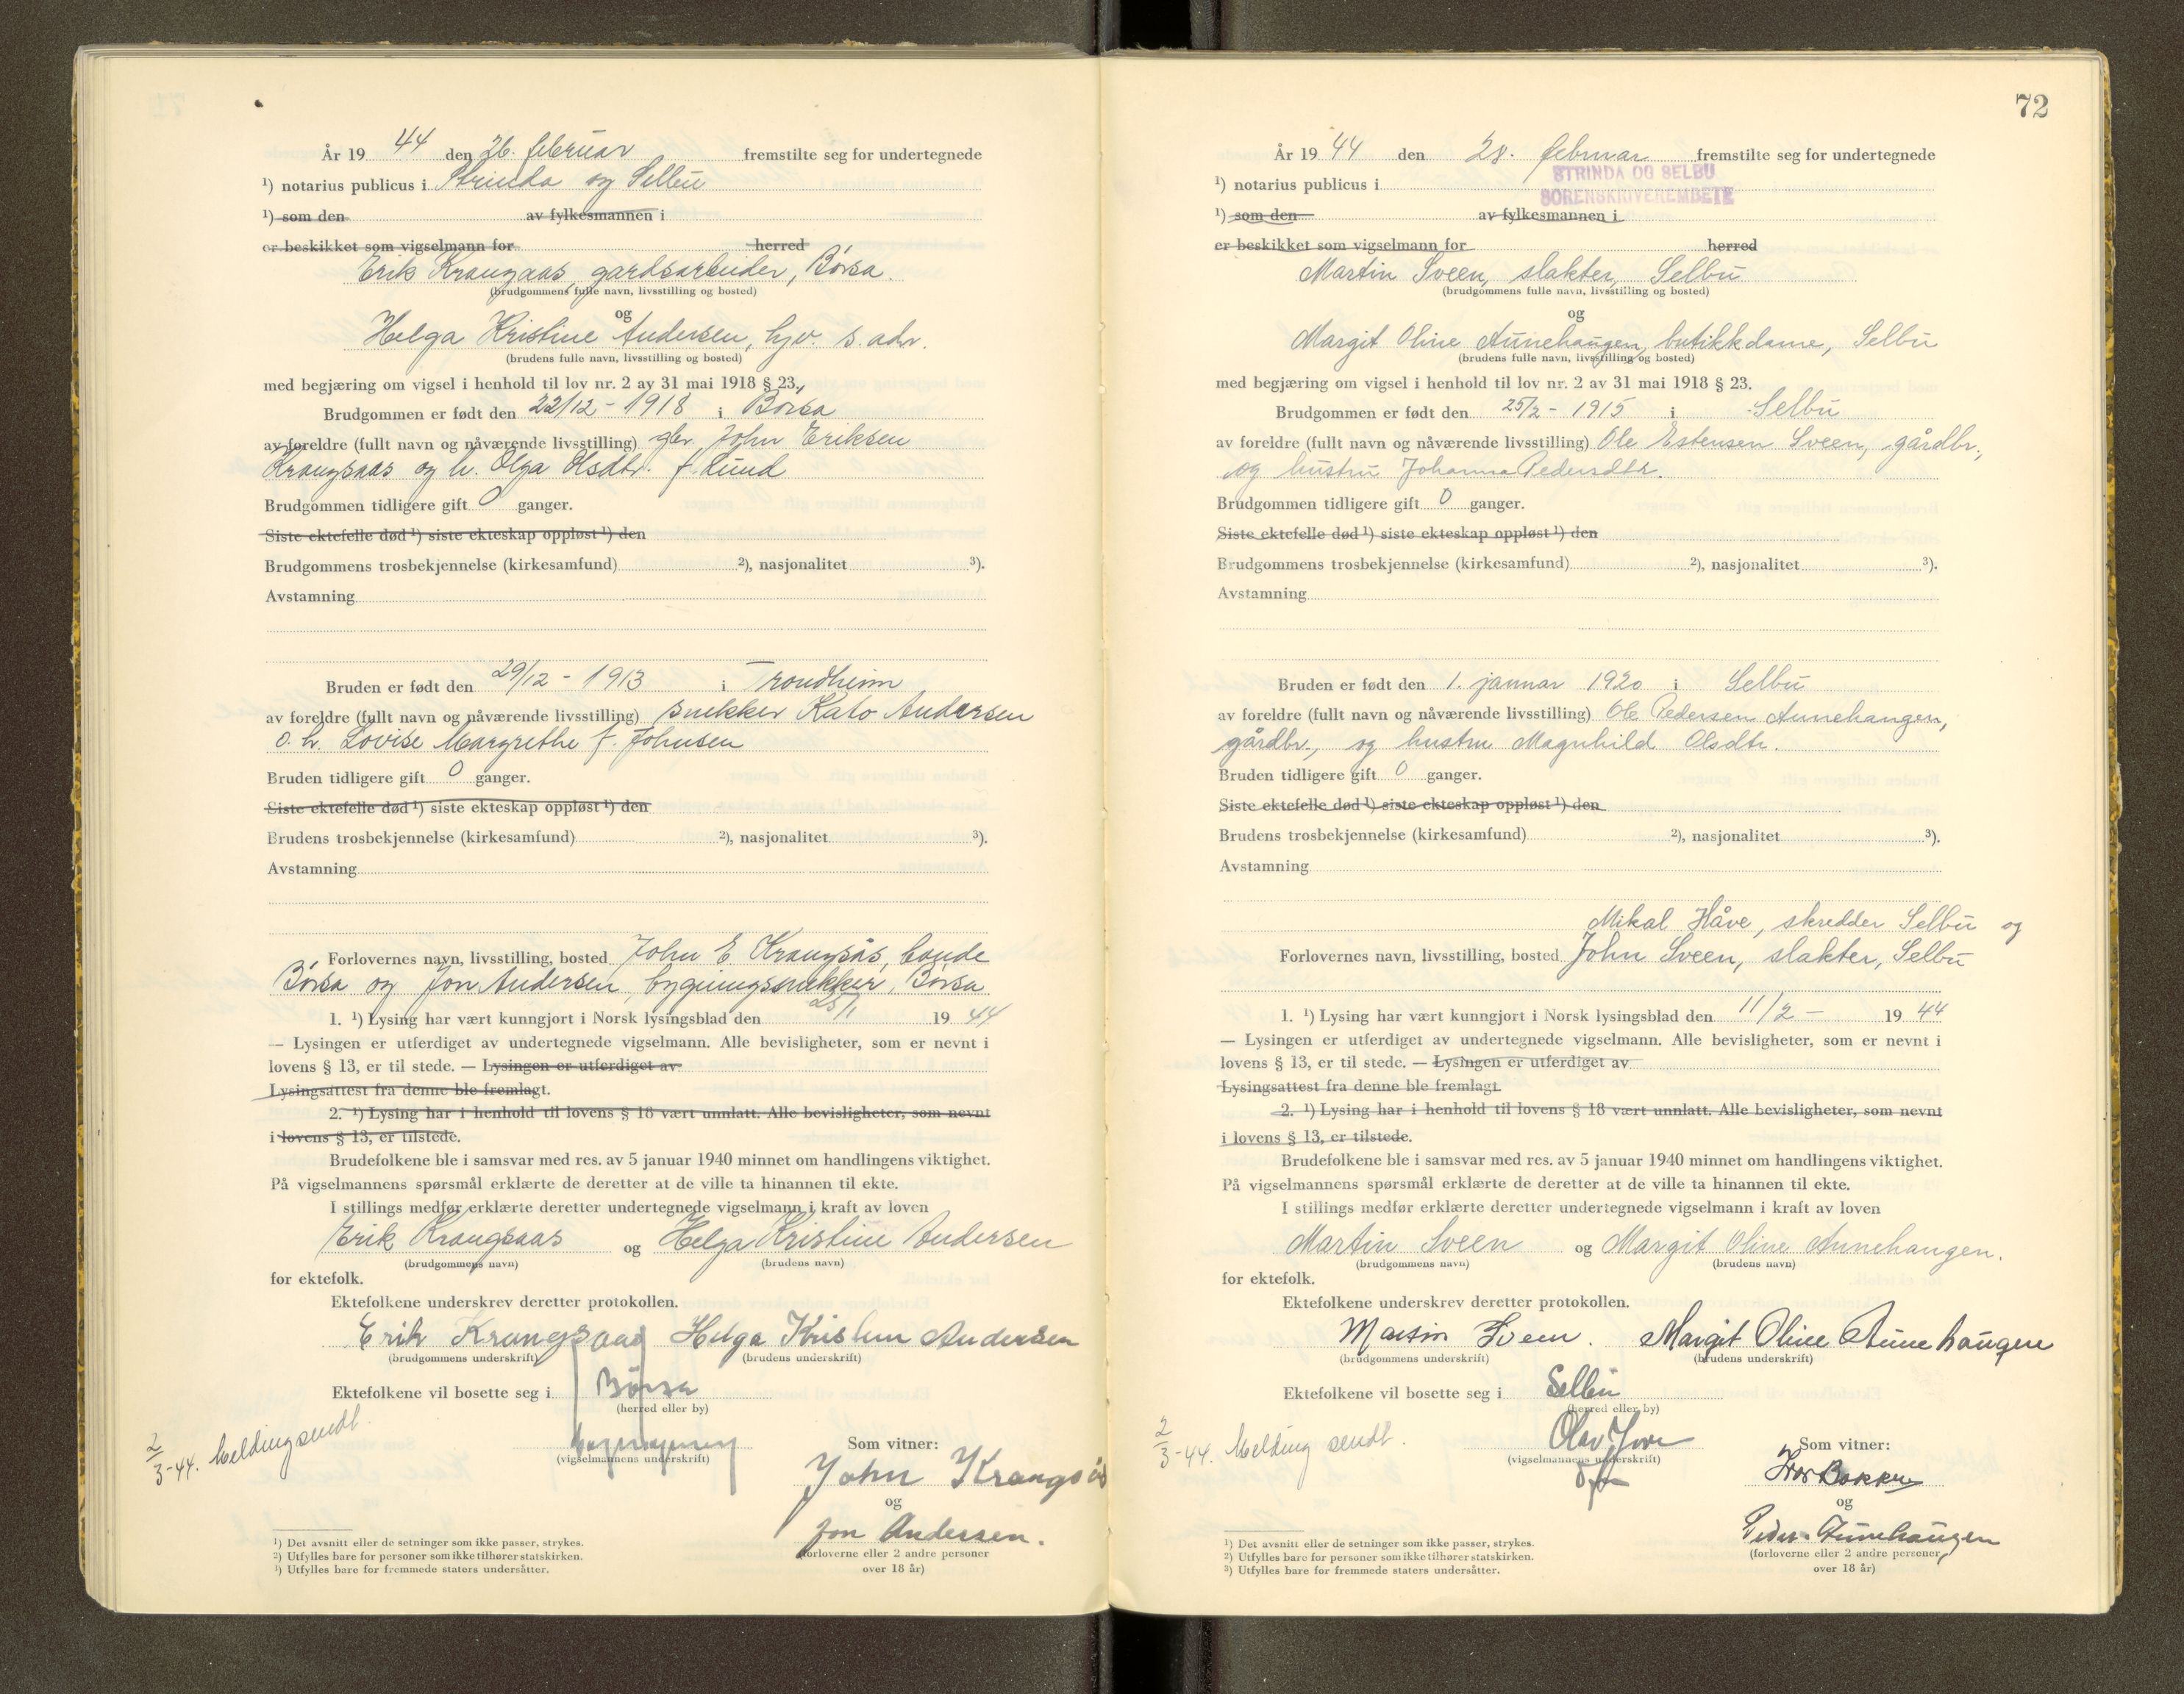 År 19 44 den 26. februar fremstilte seg for undertegnede
¹) notarius publicus i Strinda og Selbu
¹) som den av fylkesmannen i
er beskikket som vigselmann for herred
Erik Krangsaas, gardsarbeider, Börsa.
(brudgommens fulle navn, livsstilling og bosted)
og
Helga Kristine Andersen, hjv. s. adr.
(brudens fulle navn, livsstilling og bosted)
med begjæring om vigsel i henhold til lov nr. 2 av 31 mai 1918 § 23.
Brudgommen er født den 22/12 - 1918 i Börsa
av foreldre (fullt navn og nåværende livsstilling) gbr. John Eriksen
Krangsaas og h. Olga Olsdtr. f. Lund
Brudgommen tidligere gift 0 ganger.
Siste ektefelle død ¹) siste ekteskap oppløst ¹) den
Brudgommens trosbekjennelse (kirkesamfund) ²), nasjonalitet ³).
Avstamning
Bruden er født den 29/12 - 1913 i Trondheim
av foreldre (fullt navn og nåværende livsstilling) snekker Kato Andersen
o. h. Lovise Margrethe f. Johnsen
Bruden tidligere gift 0 ganger.
Siste ektefelle død ¹) siste ekteskap oppløst ¹) den
Brudens trosbekjennelse (kirkesamfund) ²), nasjonalitet ³).
Avstamning
Forlovernes navn, livsstilling, bosted John E. Krangsås, bonde
Börsa og Jon Andersen, bygningssnekker, Börsa
1. ¹) Lysing har vært kunngjort i Norsk lysingsblad den 25/1 19 44
— Lysingen er utferdiget av undertegnede vigselmann. Alle bevisligheter, som er nevnt i
lovens § 13, er til stede. — Lysingen er utferdiget av
Lysingsattest fra denne ble fremlagt.
2. ¹) Lysing har i henhold til lovens § 18 vært unnlatt. Alle bevisligheter, som nevnt
i lovens § 13, er tilstede.
Brudefolkene ble i samsvar med res. av 5 januar 1940 minnet om handlingens viktighet.
På vigselmannens spørsmål erklærte de deretter at de ville ta hinannen til ekte.
I stillings medfør erklærte deretter undertegnede vigselmann i kraft av loven
Erik Krangsaas og Helga Kristine Andersen
(brudgommens navn) (brudens navn)
for ektefolk.
Ektefolkene underskrev deretter protokollen.
Erik Krangsaas Helga Kristine Andersen
(brudgommens underskrift) (brudens underskrift)
Ektefolkene vil bosette seg i Börsa
(herred eller by)
2/3-44. Melding sendt.
(vigselmannens underskrift)
Som vitner:
John Krangsås
og
Jon Andersen.
(forloverne eller 2 andre personer
over 18 år)
¹) Det avsnitt eller de setninger som ikke passer, strykes.
²) Utfylles bare for personer som ikke tilhører statskirken.
³) Utfylles bare for fremmede staters undersåtter.
72
År 19 44 den 28. februar fremstilte seg for undertegnede
¹) notarius publicus i STRINDA OG SELBU
SORENSKRIVEREMBETE
¹) som den av fylkesmannen i
er beskikket som vigselmann for herred
Martin Sveen, slakter, Selbu
(brudgommens fulle navn, livsstilling og bosted)
og
Margit Oline Aunehaugen, butikkdame, Selbu
(brudens fulle navn, livsstilling og bosted)
med begjæring om vigsel i henhold til lov nr. 2 av 31 mai 1918 § 23.
Brudgommen er født den 25/2 - 1915 i Selbu
av foreldre (fullt navn og nåværende livsstilling) Ole Estensen Sveen, gårdbr.,
og hustru Johanna Pedersdtr.
Brudgommen tidligere gift 0 ganger.
Siste ektefelle død ¹) siste ekteskap oppløst ¹) den
Brudgommens trosbekjennelse (kirkesamfund) ²), nasjonalitet ³).
Avstamning
Bruden er født den 1. januar 1920 i Selbu
av foreldre (fullt navn og nåværende livsstilling) Ole Pedersen Aunehaugen,
gårdbr., og hustru Magnhild Olsdtr.
Bruden tidligere gift 0 ganger.
Siste ektefelle død ¹) siste ekteskap oppløst ¹) den
Brudens trosbekjennelse (kirkesamfund) ²), nasjonalitet ³).
Avstamning
Mikal Håve, skredder Selbu og
Forlovernes navn, livsstilling, bosted John Sveen, slakter, Selbu
1. ¹) Lysing har vært kunngjort i Norsk lysingsblad den 11/2 - 19 44
— Lysingen er utferdiget av undertegnede vigselmann. Alle bevisligheter, som er nevnt i
lovens § 13, er til stede. — Lysingen er utferdiget av
Lysingsattest fra denne ble fremlagt.
2. ¹) Lysing har i henhold til lovens § 18 vært unnlatt. Alle bevisligheter, som nevnt
i lovens § 13, er tilstede.
Brudefolkene ble i samsvar med res. av 5 januar 1940 minnet om handlingens viktighet.
På vigselmannens spørsmål erklærte de deretter at de ville ta hinannen til ekte.
I stillings medfør erklærte deretter undertegnede vigselmann i kraft av loven
Martin Sveen og Margit Oline Aunehaugen.
(brudgommens navn) (brudens navn)
for ektefolk.
Ektefolkene underskrev deretter protokollen.
Martin Sveen. Margit Oline Aunehaugen
(brudgommens underskrift) (brudens underskrift)
Ektefolkene vil bosette seg i Selbu
(herred eller by)
2/3-44. Melding sendt.
Olav
(vigselmannens underskrift)
Som vitner:
Ivar Bakken
og
Peder Aunehaugen
(forloverne eller 2 andre personer
over 18 år)
¹) Det avsnitt eller de setninger som ikke passer, strykes.
²) Utfylles bare for personer som ikke tilhører statskirken.
³) Utfylles bare for fremmede staters undersåtter.